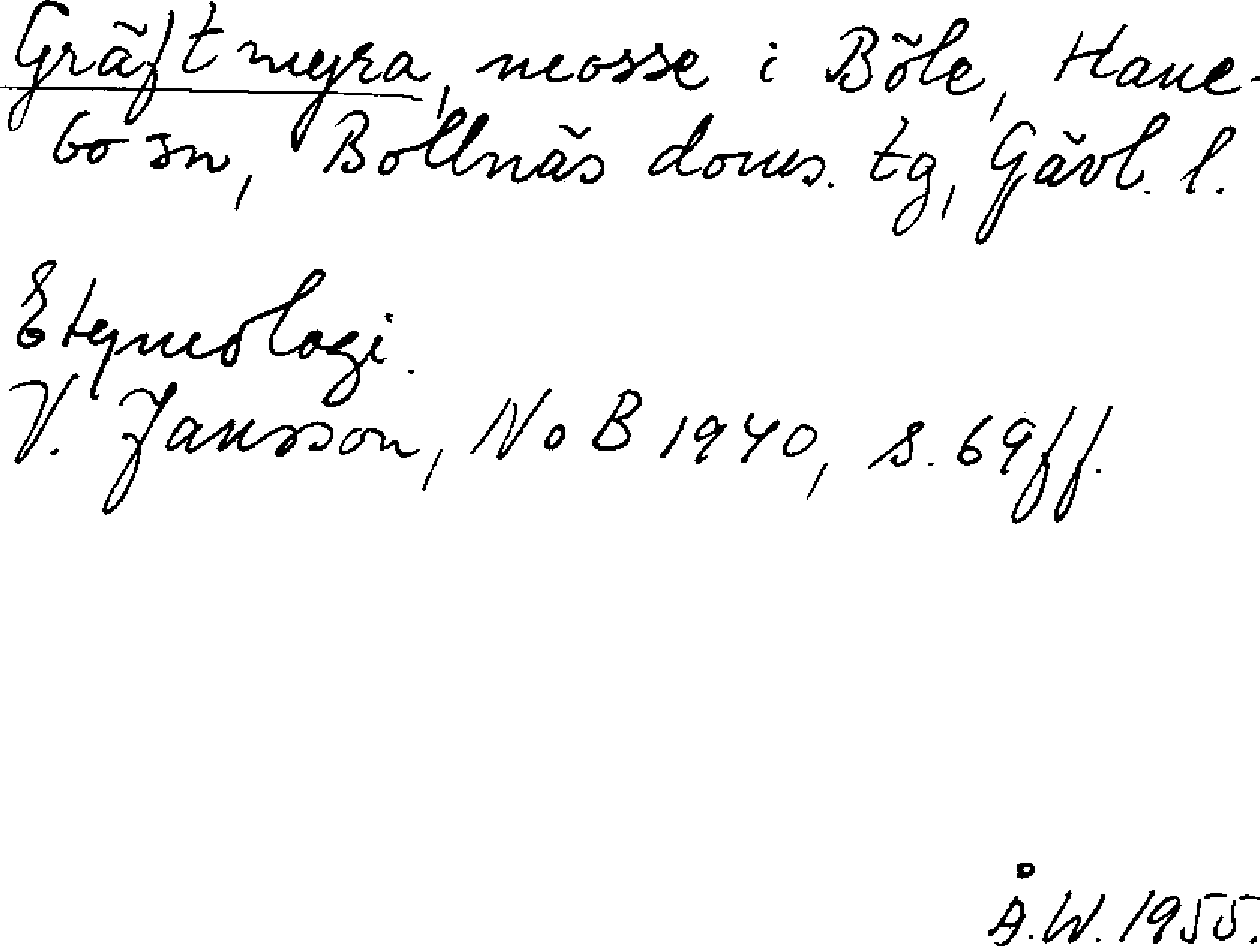 Gräftmyra, mosse i Böle, Hane-
bo sn, Bollnäs doms. tg, Gävl. l.
Etymologi.
V. Jansson, NoB 1940, s. 69ff.
Å.W. 1955.